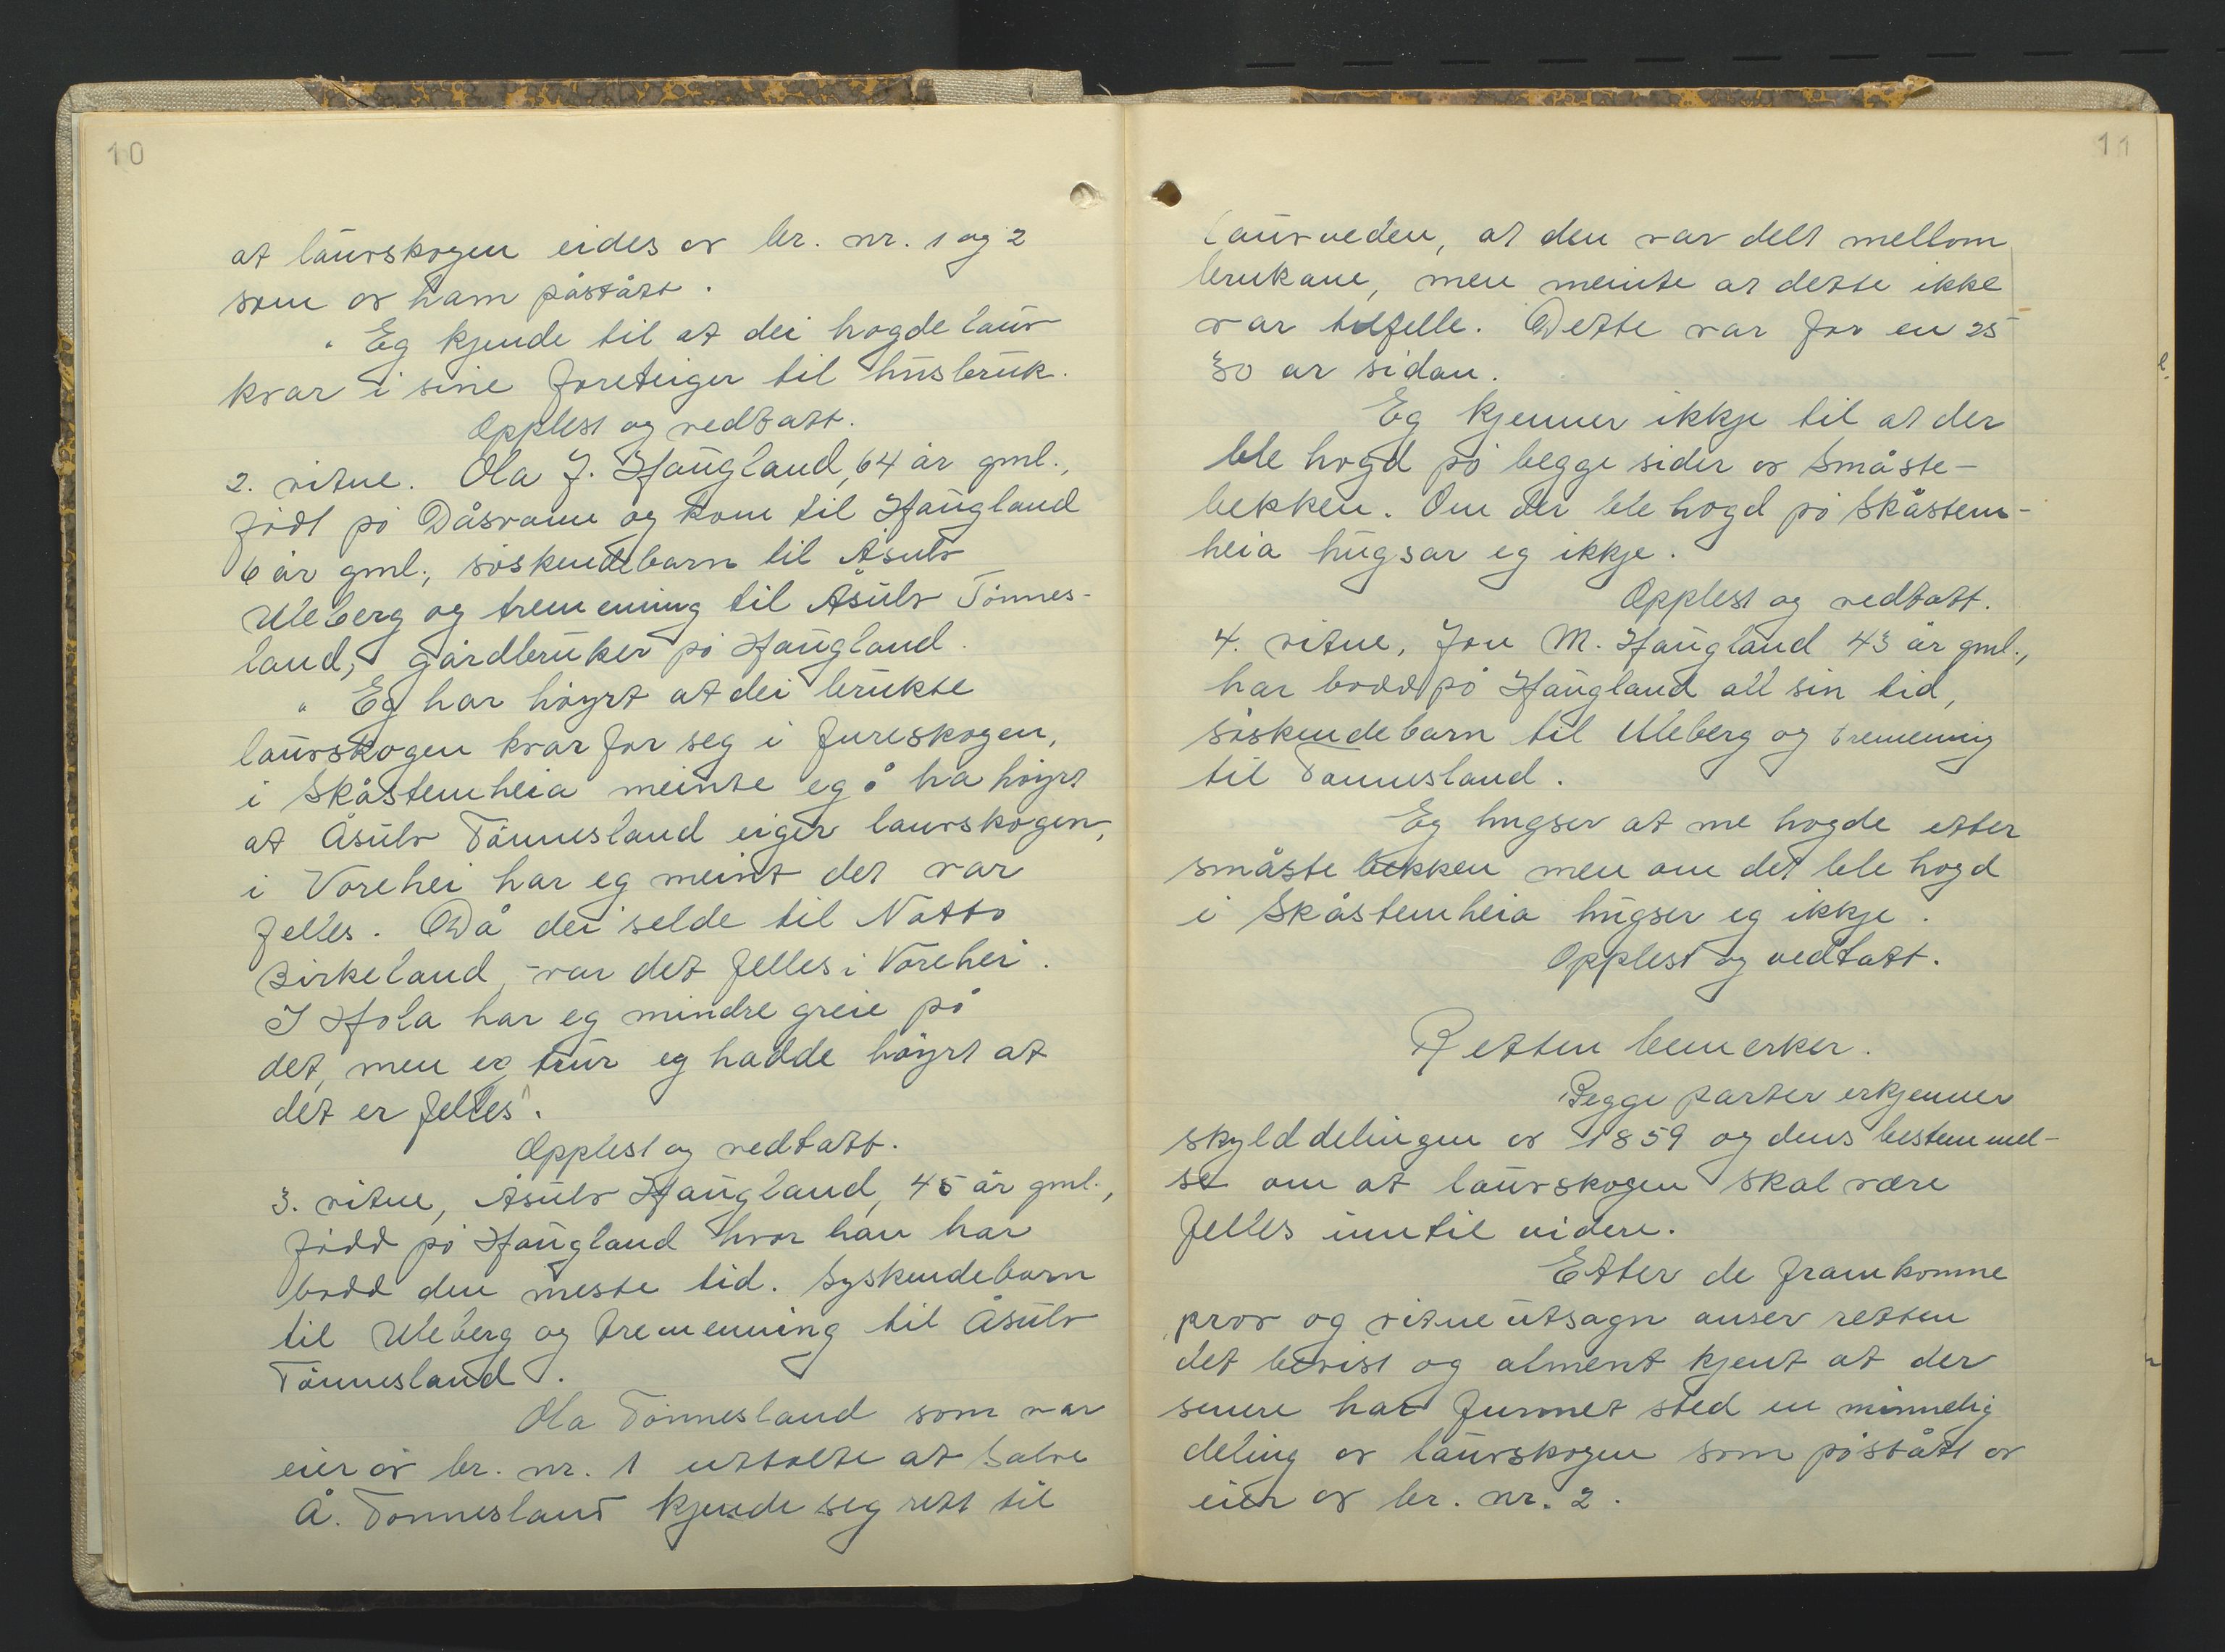 10
at laurskogen eides av br. nr. 1 og 2
som av ham påstått.
" Eg kjende til at dei hogde laur
kvar i sine foreteiger til husbruk.
Opplest og vedtatt.
2. vitne. Ola J. Haugland, 64 år gml.,
født på Dåsvann og kom til Haugland
6 år gml., søskendebarn til Åsulv
Uleberg og tremenning til Åsulv Tønnes-
land, gårdbruker på Haugland.
" Eg har høyrt at dei brukte
laurskogen kvar for seg i fureskogen,
i Skåstemheia meinte eg å ha høyrt
at Åsulv Tønnesland eiger laurskogen,
i Vorehei har eg meint det var
felles. Då dei selde til Notto
Birkeland, var det felles i Vorehei.
I Hola har eg mindre greie på
det, men eg trur eg hadde høyrt at
det er felles".
Opplest og vedtatt.
3. vitne, Åsulv Haugland, 45 år gml.,
fødd på Haugland hvor han har
bodd den meste tid. Syskendebarn
til Uleberg og tremenning til Åsulv
Tønnesland.
Ola Tønnesland som var
eier av br. nr. 1 uttalte at Salve
Å. Tønnesland kjende seg rett til
11
laurveden, at den var delt mellom
brukane, men meinte at dette ikke
var tilfelle. Dette var for en 25-
30 år sidan.
Eg kjenner ikkje til at der
ble hogd på begge sider av Småste-
bekken. Om der ble hogd på Skåstem-
heia hugsar eg ikkje.
Opplest og vedtatt.
4. vitne, Jon M. Haugland 43 år gml.,
har bodd på Haugland all sin tid,
søskendebarn til Uleberg og tremenning
til Tønnesland.
Eg hugser at me hogde etter
småste bekken men om det ble hogd
i Skåstemheia hugser eg ikkje.
Opplest og vedtatt.
Retten bemerker.
Begge parter erkjenner
skylddelingen av 1859 og dens bestemmel-
se om at laurskogen skal være
felles inntil videre.
Etter de framkomne
prov og vitneutsagn anser retten
det bevist og alment kjent at der
senere har funnet sted en minnelig
deling av laurskogen som påstått av
eier av br. nr. 2.